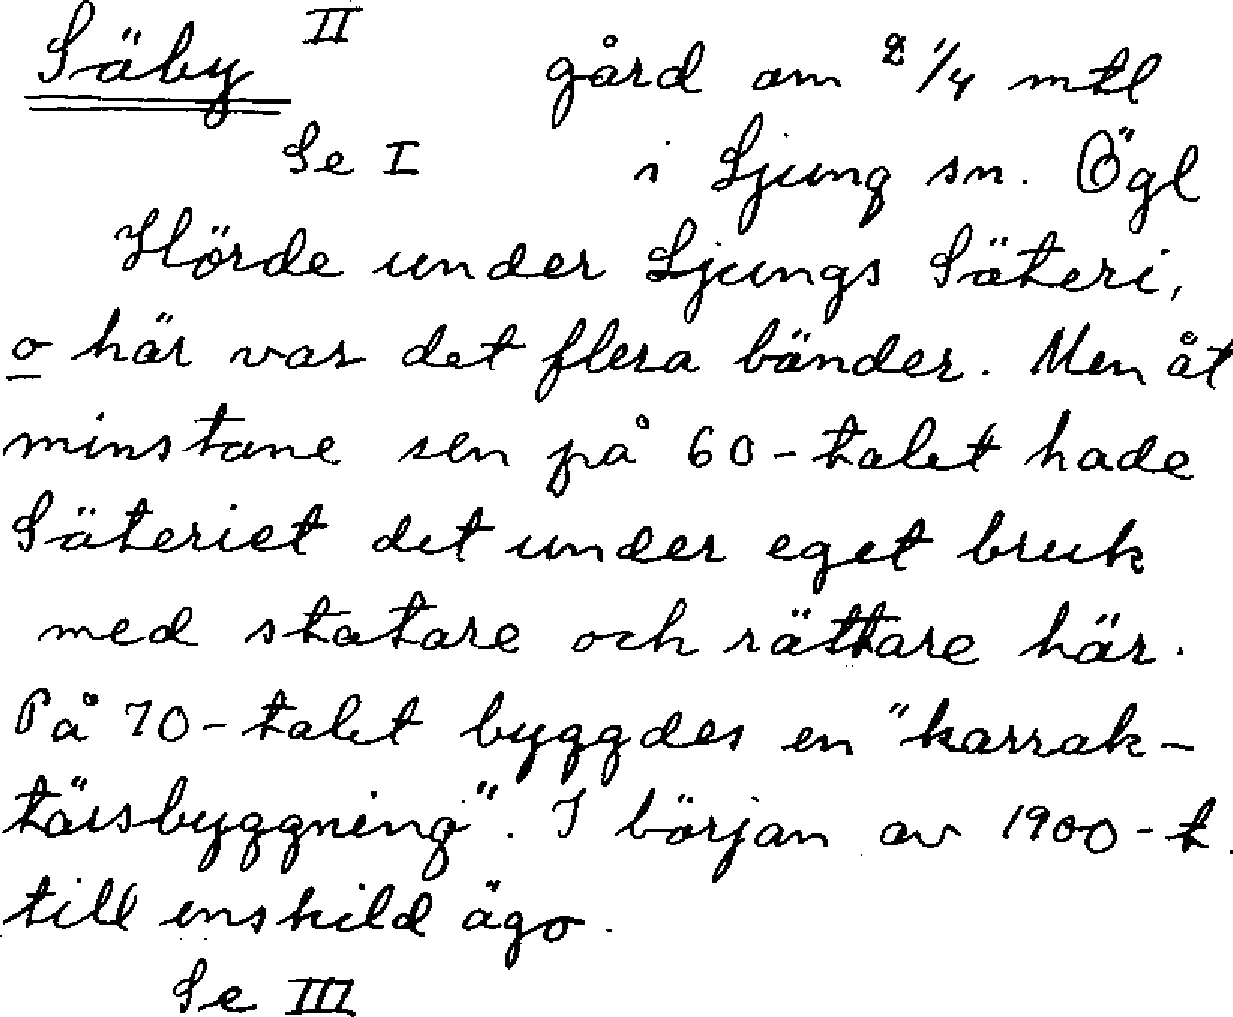 Säby II gård om 2 1/4 mtl
Se I i Ljung sn. Ögl
Hörde under Ljungs Säteri,
o här var det flera bänder. Men åt
minstone sen på 60-talet hade
Säteriet det under eget bruk
med statare och rättare här.
På 70-talet byggdes en "karrak-
tärsbyggning". I början av 1900-t.
till enskild ägo.
Se III